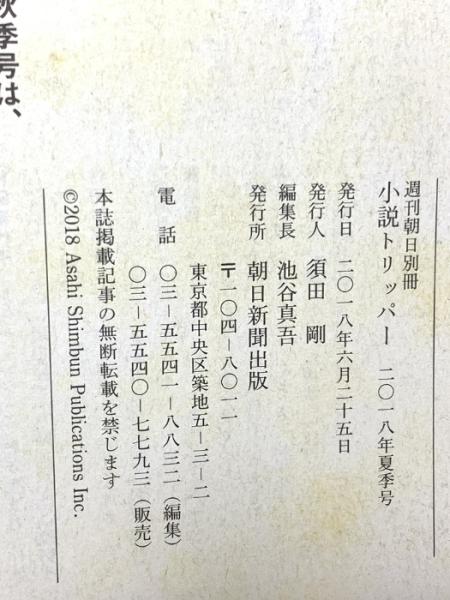 週刊朝日別冊
小説トリッパー 二〇一八年夏季号
発行日 二〇一八年六月二十五日
発行人 須田 剛
編集長 池谷真吾
発行所 朝日新聞出版
〒一〇四−八〇一一
東京都中央区築地五−三−二
電話 〇三−五五四一−八八三二(編集)
〇三−五五四〇−七七九三(販売)
本誌掲載記事の無断転載を禁じます
©2018 Asahi Shimbun Publications Inc.
秋季号は、